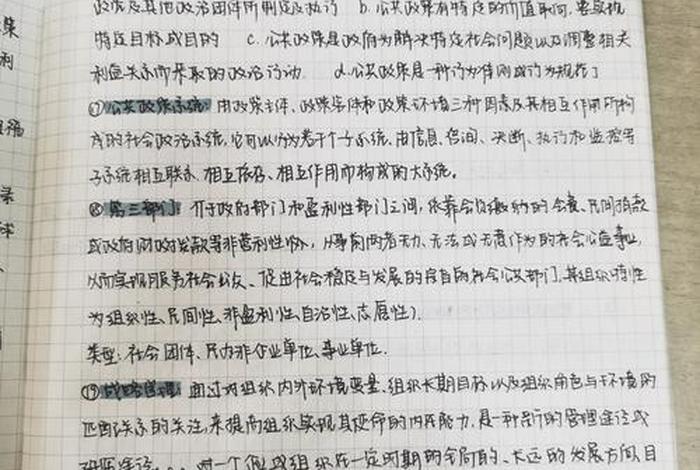 政党及其他政治团体所制定及执行 b.公共政策有特定的价值取向,要实现
特定目标或目的 c.公共政策是政府为解决特定社会问题以及调整相关
利益关系而采取的政治行动. d.公共政策是一种行为准则或行为规范]
⑰公共政策系统:由政策主体、政策客体和政策环境三种因素及其相互作用所构
成的社会政治系统,它可以分为若干个子系统,由信息、咨询、决断、执行和监控等
子系统相互联系、相互依存、相互作用而构成的大系统。
⑱第三部门:介于政府部门和盈利性部门之间,依靠会员缴纳的会费、民间捐款
或政府财政拨款等非营利性收入,从事前两者无力、无法或无意作为的社会公益事业,
从而实现服务社会公众、促进社会稳定与发展的宗旨的社会公共部门,其组织特性
为组织性、民间性、非盈利性、自治性、志愿性).
类型:社会团体、民办非企业单位、事业单位.
⑲战略管理:通过对组织内外环境变量、组织长期目标以及组织角色与环境的
匹配关系的关注,来提高组织实现其使命的内在能力,是一种新的管理途径或
研究途径 对一个 或组织在一定时期的全局的、长远的发展方向、目